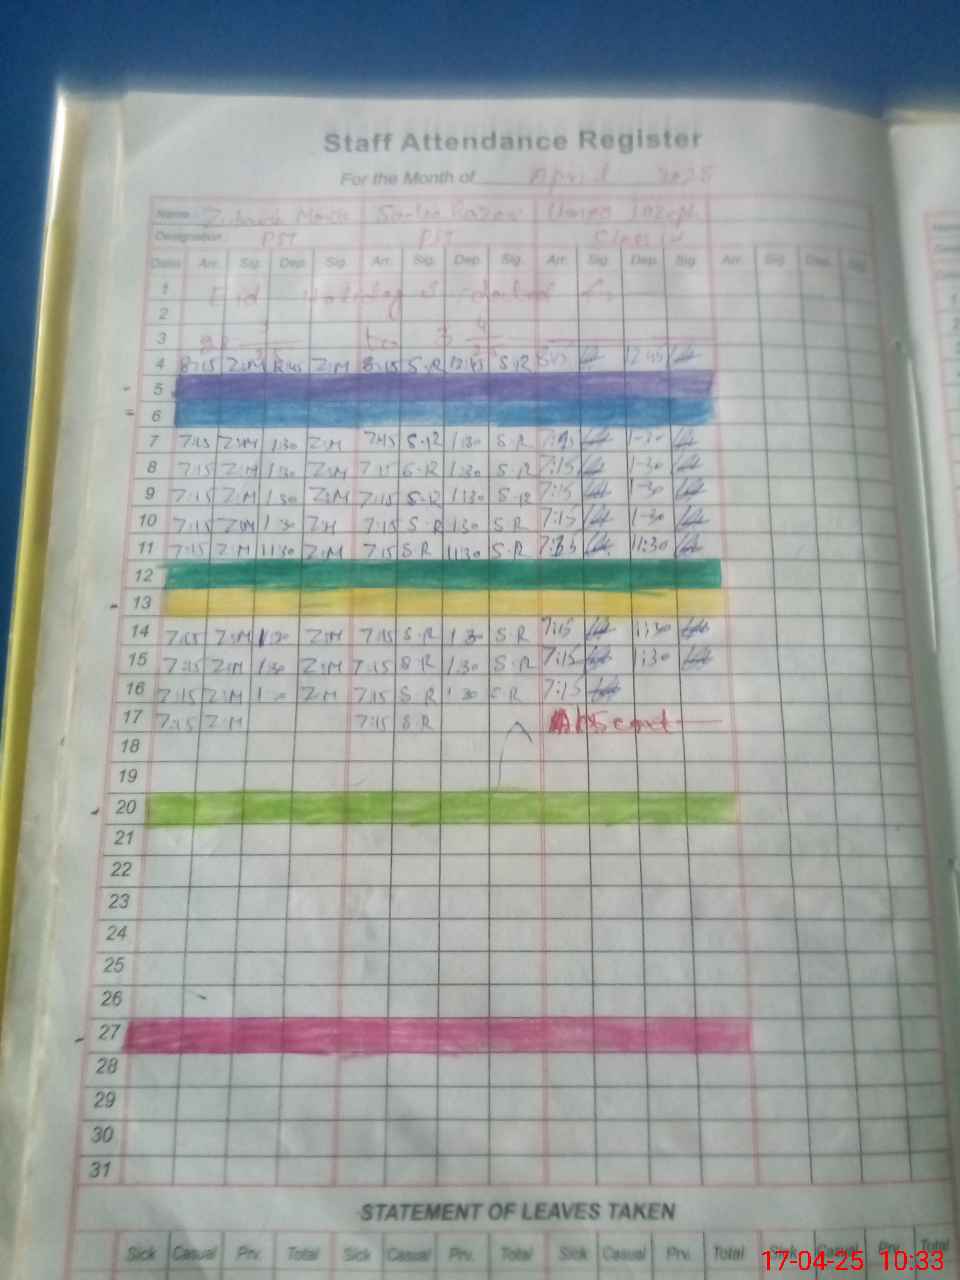 Staff Attendance Register
For the Month of April 2025
Name
Designation PST PST Class iv
Date Arr. Sig. Dep. Sig. Arr. Sig. Dep. Sig. Arr. Sig. Dep. Sig. Arr. Sig. Dep. Sig.
1 Eid Holiday
2
3
4 8:15 Z:M 12:45 Z:M 8:15 S.R 12:45 S.R 12:45
5
6
7 7:15 Z:M 1:30 Z:M 7:15 S.R 1:30 S.R 1-30
8 7:15 Z:M 1:30 Z:M 7:15 S-R 1:30 S.R 7:15 1-30
9 7:15 Z:M 1:30 Z:M 7:15 S-R 1:30 S-R 7:15 1-30
10 7:15 Z:M 1:30 Z:M 7:15 S.R 1:30 S.R 7:15 1-30
11 7:15 Z:M 11:30 Z:M 7:15 S.R 11:30 S.R 11:30
12
13
14 7:15 Z:M 1:30 Z:M 7:15 S.R 1:30 S.R 7:15 1:30
15 7:15 Z:M 1:30 Z:M 7:15 S.R 1:30 S.R 7:15 1:30
16 7:15 Z:M 1:30 Z:M 7:15 S.R 1:30 S.R 7:15
17 7:15 Z:M 7:15 S.R Absent
18
19
20
21
22
23
24
25
26
27
28
29
30
31
STATEMENT OF LEAVES TAKEN
Sick Casual Prv. Total Sick Casual Prv. Total Sick Casual Prv. Total Sick Casual Prv. Total
17-04-25 10:33